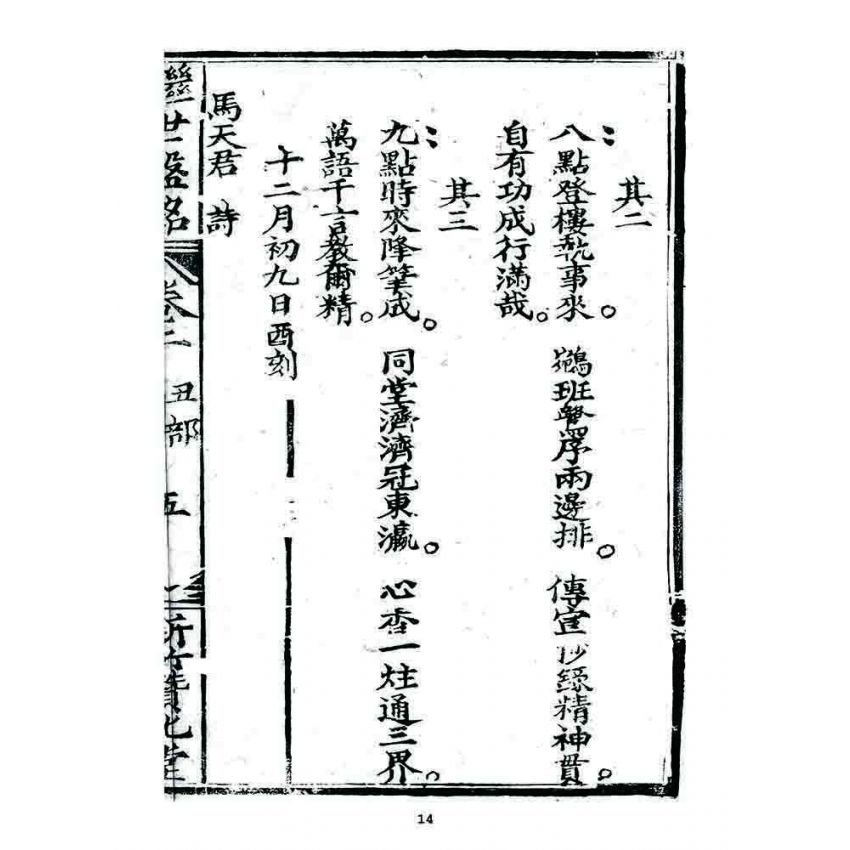 其二
八點登樓執事來。鵷班鷺序兩邊排。傳宣抄錄精神貫。
自有功成行滿哉。
其三
九點時來降筆成。同堂濟濟冠東瀛。心香一炷通三界。
萬語千言教爾精。
十二月初九日酉刻
馬天君 詩
世盤銘 卷二 丑部 五 新竹贊化堂
14